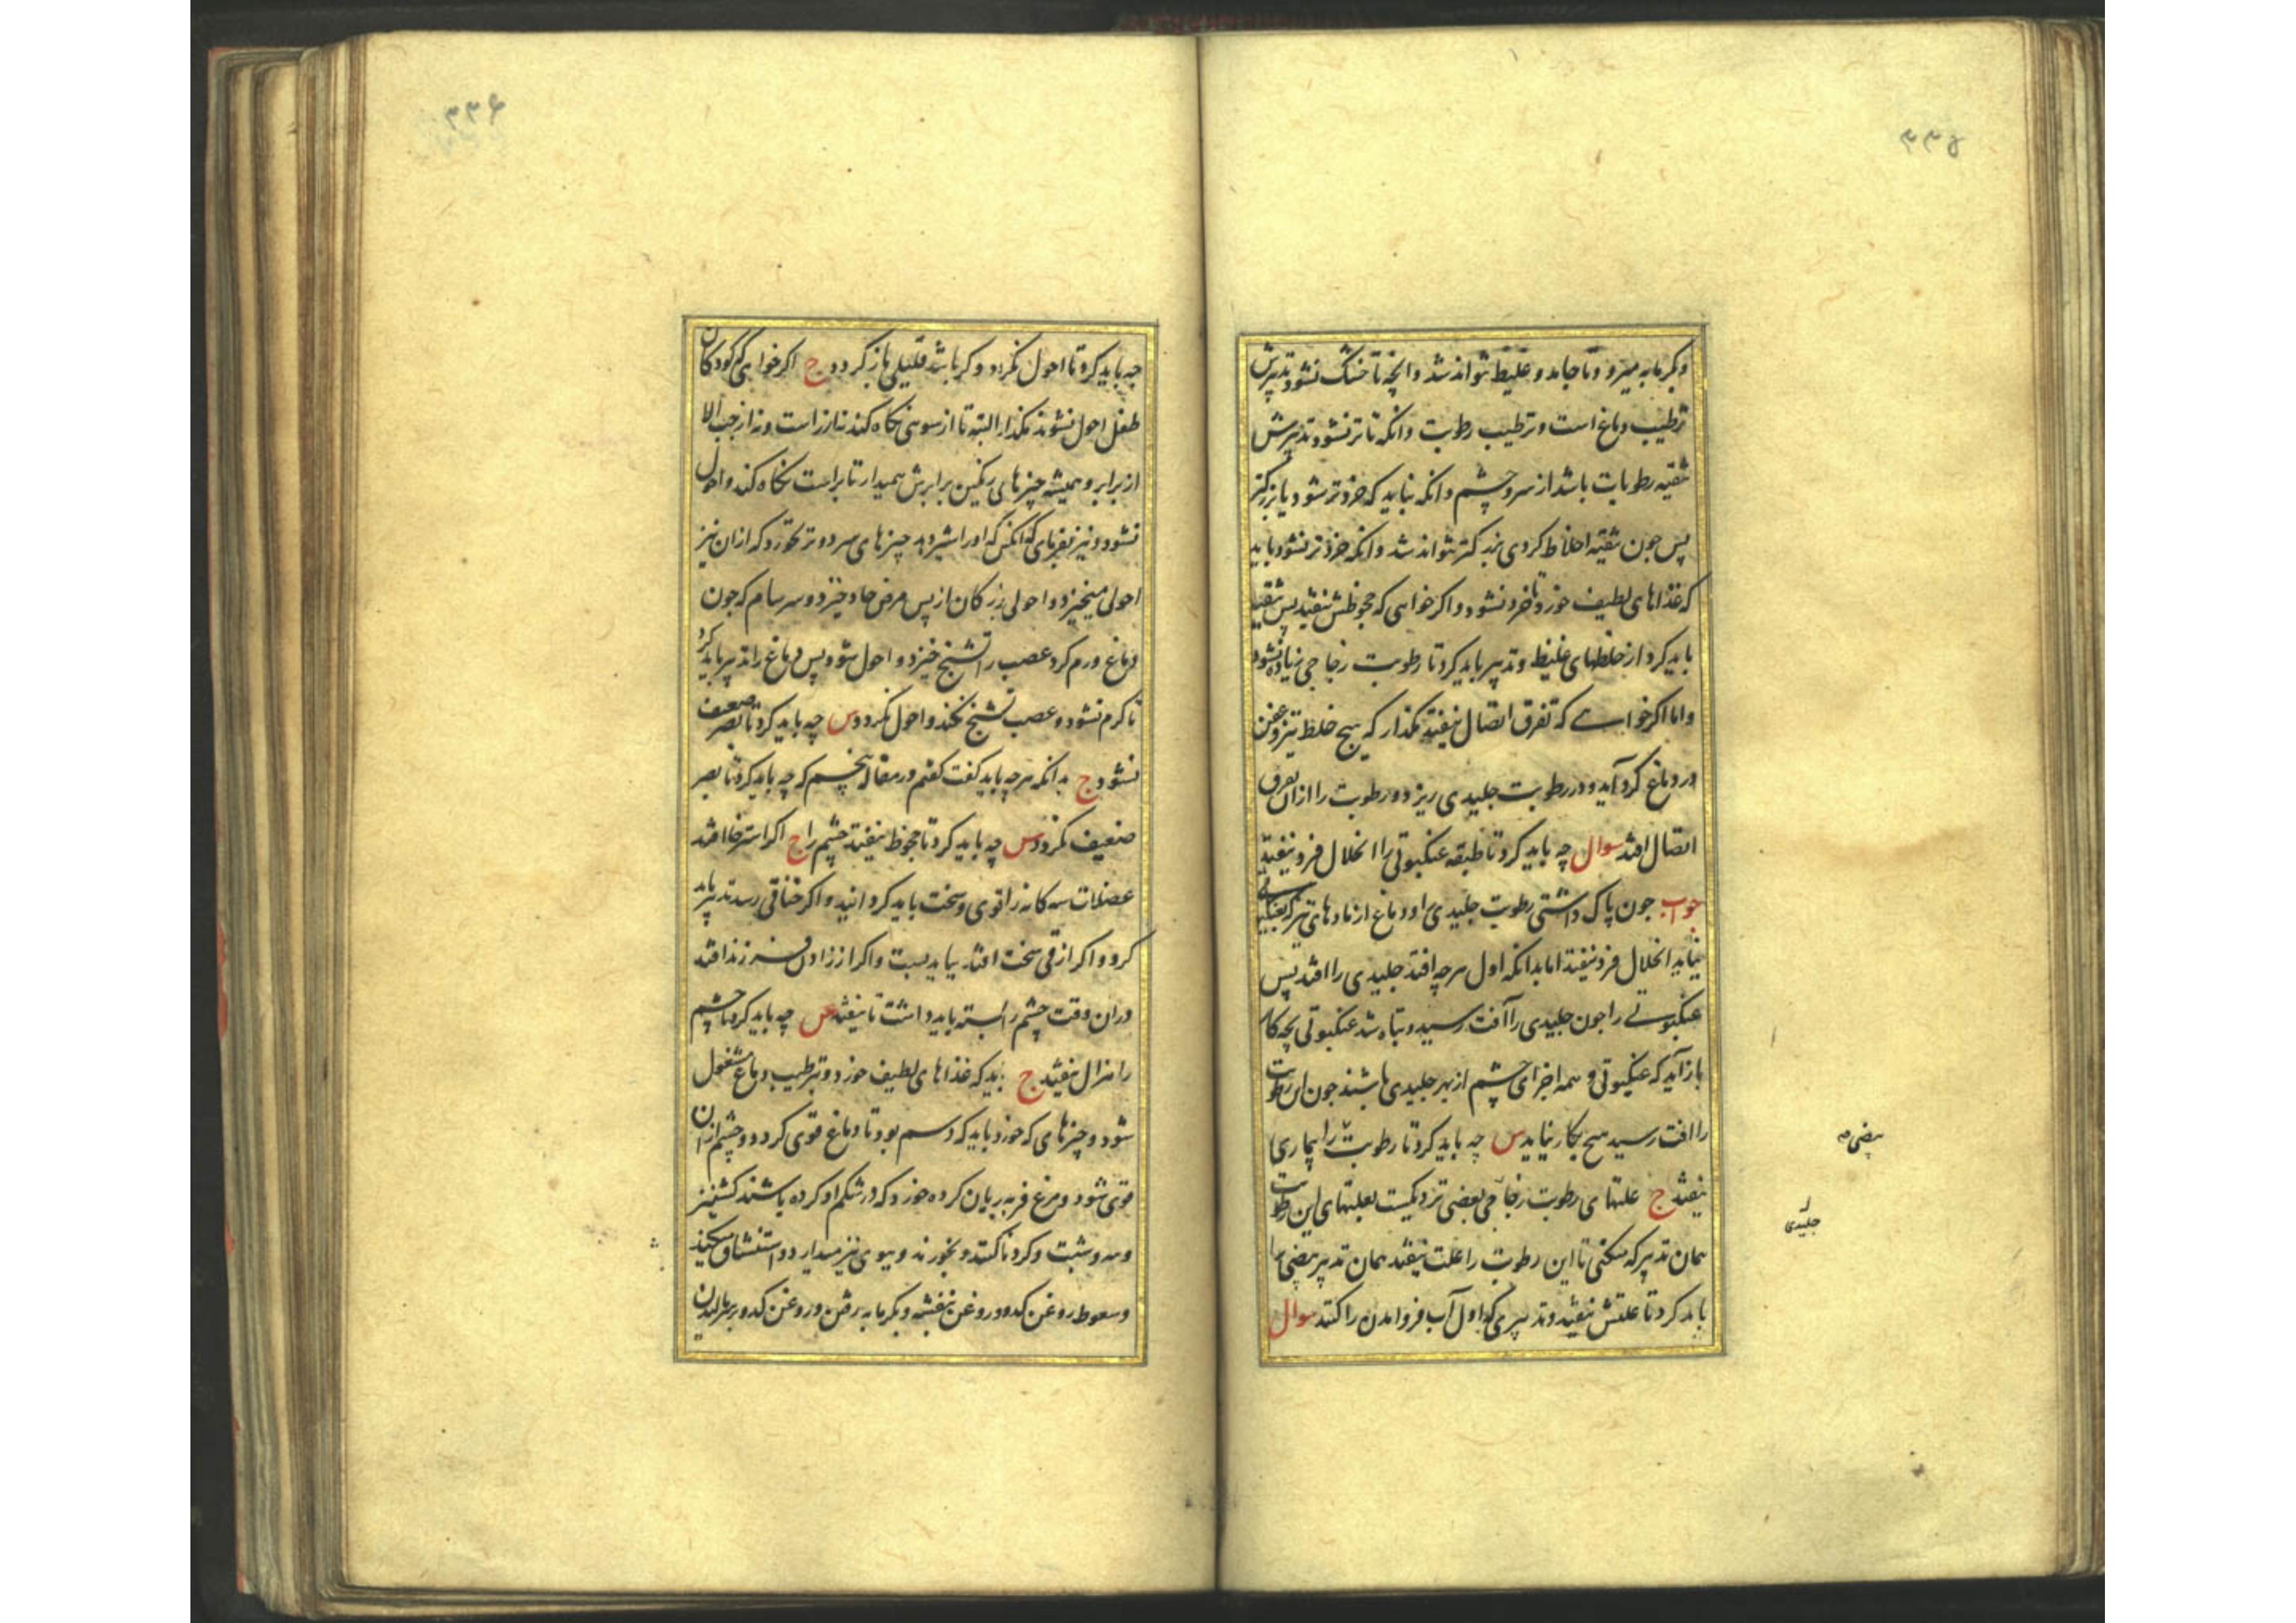 ۳۳۵
و بگرمابه میرود تا جامد و غلیظ نتواند شد و انچه تا خشک نشود تدبیرش
ترطیب دماغ است و ترطیب رطوبت و انکه تا تر نشود تدبیرش
تنقیه رطوبات باشد از سر و چشم و انکه نباید که خردتر شود یا بزرکتر
پس جون تنقیه اخلاط کردی بزرکتر نتواند شد و انکه خردتر نشود باید
که غذاهای لطیف خورد تا خرد نشود و اکر خواهی که جحوظش نیفتد پس تنقیه
باید کرد از خلطهای غلیظ و تدبیر باید کرد تا رطوبت زجاجی زیاده نشود
و اما اکر خواهی که تفرق اتصال نیفتد مکذار که هیچ خلط تیز و عفن
در دماغ کرد آید و در رطوبت جلیدی ریزد و رطوبت را ازان تفرق
اتصال افتد سوال چه باید کرد تا طبقه عنکبوتی را انحلال فرد نیفتد
جواب جون پاک داشتی رطوبت جلیدی را و دماغ از مادهای تیز که بعنکبوتی
نیاید انحلال فرد نیفتد اما بدانکه اول هرچه افتد جلیدی را افتد پس
عنکبوتی را جون جلیدی را آفت رسید و تباه شد عنکبوتی بچه کار
باز آید که عنکبوتی و همه اجزای چشم از بهر جلیدی باشند جون این رطوبت
را افت رسید هیچ بکار نیاید س چه باید کرد تا رطوبت را بیماری
نیفتد ج علتهای رطوبت زجاجی بعضی نزدیکست بعلتهای این رطوبت
همان تدبیر که میکنی تا این رطوبت را علت نیفتد همان تدبیر بیضی را
باید کرد تا علتش نیفتد و تدبیری که اول آب فرو امدن را کنند سوال
بیضی صه
جلیدی
۳۳۶
چه باید کرد تا احول نکردد و کر باشد قلیلی باز کردد ج اکر خواهی که کودکان
طفل احول نشوند مکذار البته تا از سوئی نکاه کند نه از راست و نه از چب الا
از برابر و همیشه چیزهای رنکین برابرش همیدار تا براست نکاه کند و احول
نشود و نیز بفرمای که انکس که اورا شیر دهد چیزهای سرد و تر نخورد که ازان نیز
احولی میخیزد و احولی بزرکان از پس مرض حاد خیزد و سرسام که جون
دماغ ورم کرد عصب را تشنج خیزد و احول شود پس دماغ را تدبیر باید کرد
تا کرم نشود و عصب تشنج نکند و احول نکردد س چه باید کرد تا بصر ضعیف
نشود ج بدانکه هرچه باید کفت کفتم در مقاله پنجم که چه باید کرد تا بصر
ضعیف نکردد س چه باید کرد تا جحوظ نیفتد چشم را ج اکر استرخا افتد
عضلات سه کانه را قوی و سخت باید کردانید و اکر خناقی رسد تدبیر باید
کرد و اکر از قی سخت افتد بباید بست و اکر از زادن فرزند افتد
دران وقت چشم را بسته باید داشت تا نیفتد س چه باید کرد تا چشم
را هزال نیفتد ج باید که غذاهای لطیف خورد و بترطیب دماغ مشغول
شود و چیزهای که خورد باید که دسم بود تا دماغ قوی کردد و چشم ازان
قوی شود و مرغ فربه بریان کرده خورد که در شکم او کرده باشند کشنیز
و سه و شبت و کردنا کنند و بخورند و ببوی نیز میدارد و استنشاق میکند
و سعوط روغن کدو و روغن بنفشه و بکرمابه رفتن و روغن کدو بر سر مالیدن